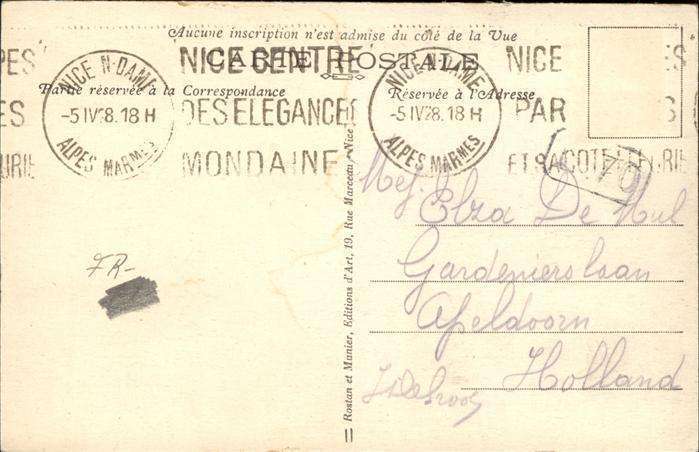 Aucune inscription n'est admise du côté de la Vue
CARTE POSTALE
Partie réservée à la Correspondance
Réservée à l'Adresse
NICE N-DAME
-5 IV 28. 18 H
ALPES MARMES
NICE CENTRE
DES ELEGANCES
MONDAINE
NICE N-DAME
-5 IV 28. 18 H
ALPES MARMES
NICE
PAR
ET SA COTE FLEURIE
Mej.
Elza De Mul
Gardenierslaan
Apeldoorn
Holland
FR-
Rostan et Munier, Editions d'Art, 19, Rue Marceau, Nice
11